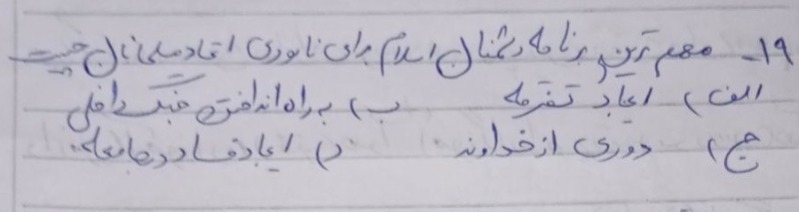 ۱۹- مهم ترین برنامه دشمنان اسلام برای نابودی اتحاد مسلمانان چیست
الف) ایجاد تفرقه ب) به راه انداختن جنگ داخلی
ج) دوری از خداوند د) ایجاد فساد در جامعه.